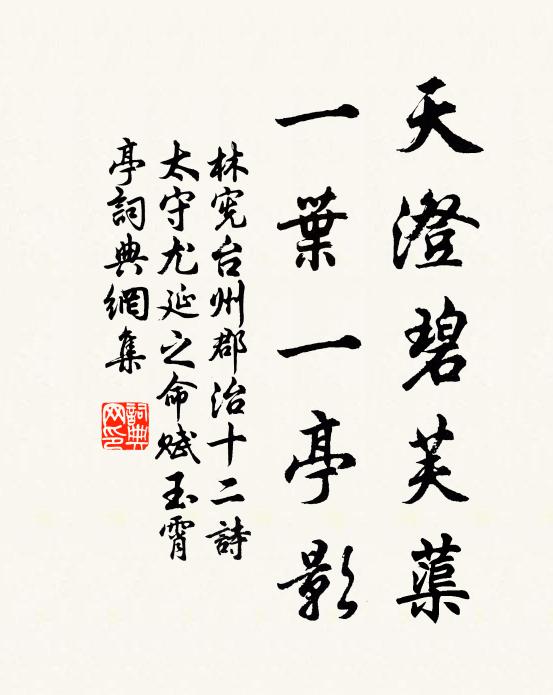 天澄碧芙蕖
一葉一亭影
林宪台州郡治十二詩
太守尤延之命赋玉霄
亭詞典網集
詞典网印